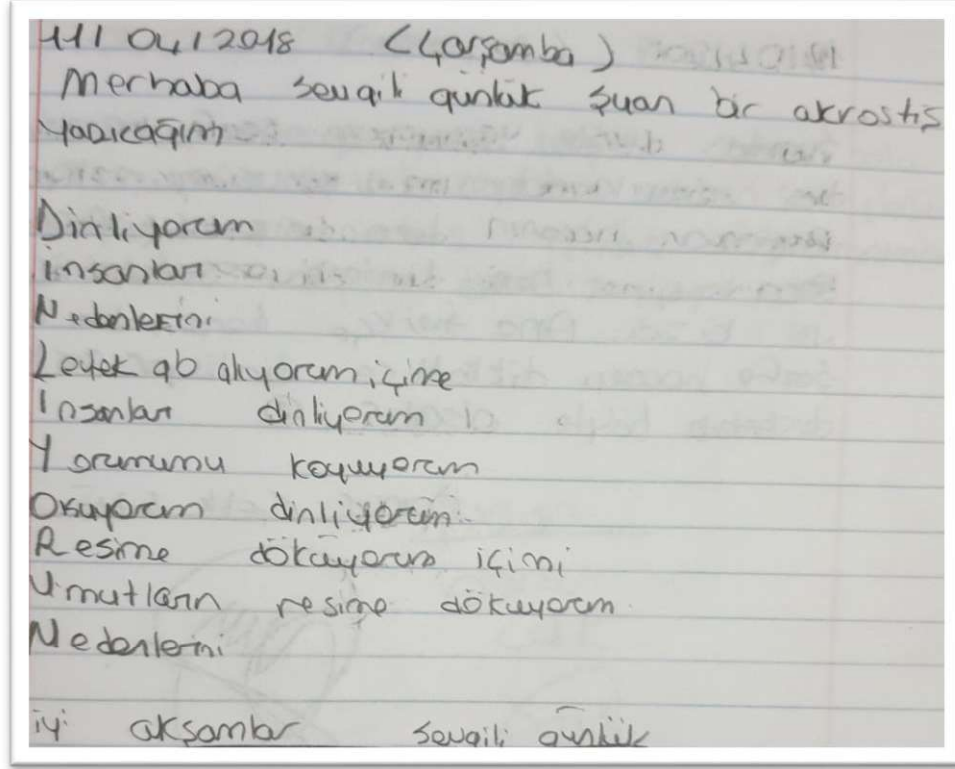 11/04/2018 (Çarşamba)
Merhaba sevgili günlük şuan bir akrostiş
yazıcağım
Dinliyorum
insanları
Nedenlerini
Levek gb alıyorum içime
İnsanları dinliyorum
Yorumumu koyuyorum
Okuyorum dinliyorum
Resime döküyorum içimi
Umutların resime döküyorum
Nedenlerini
iyi akşamlar sevgili günlük